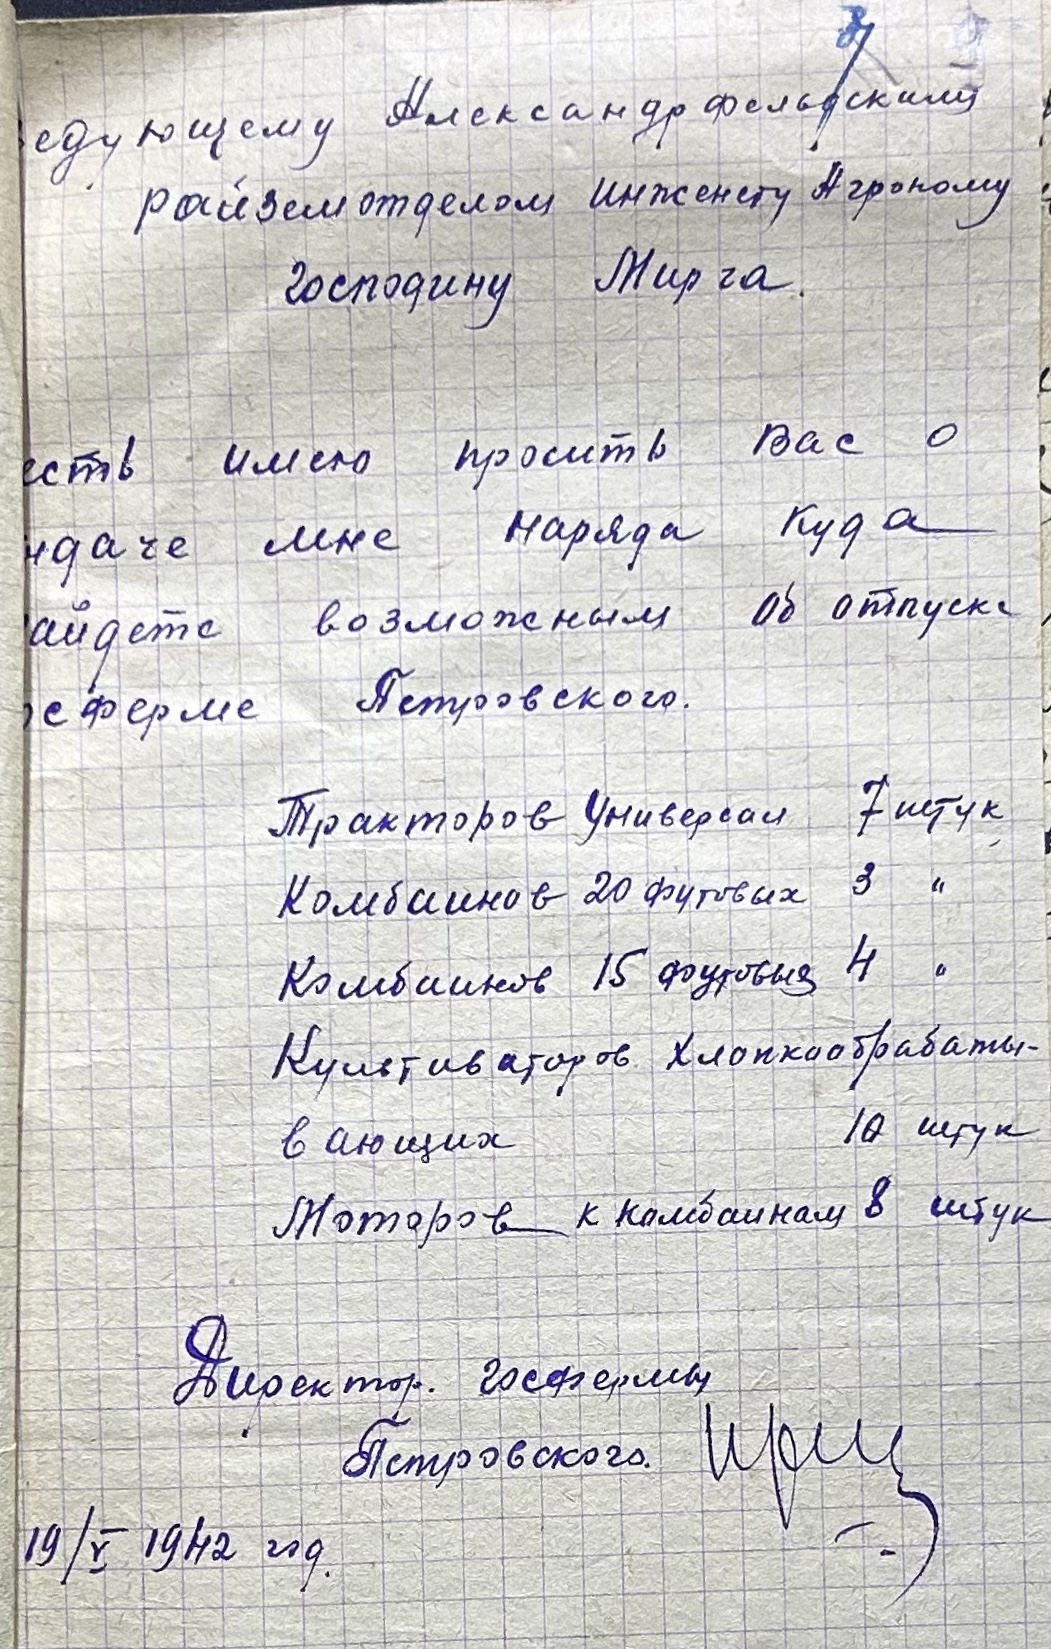 едующему Александрфельдским
райземотделом инженеру Агроному
господину Мирча.
есть имею просить Вас о
ыдаче мне наряда куда
айдете возможным об отпуске
осферме Петровского.
Тракторов Универсал 7 штук
Комбаинов 20 футовых 3 "
Комбаинов 15 футовых 4 "
Культиваторов Хлопкообрабаты-
вающих 10 штук
Моторов к комбаинам 8 штук
Директор. госфермы
Петровского.
19/V 1942 год.